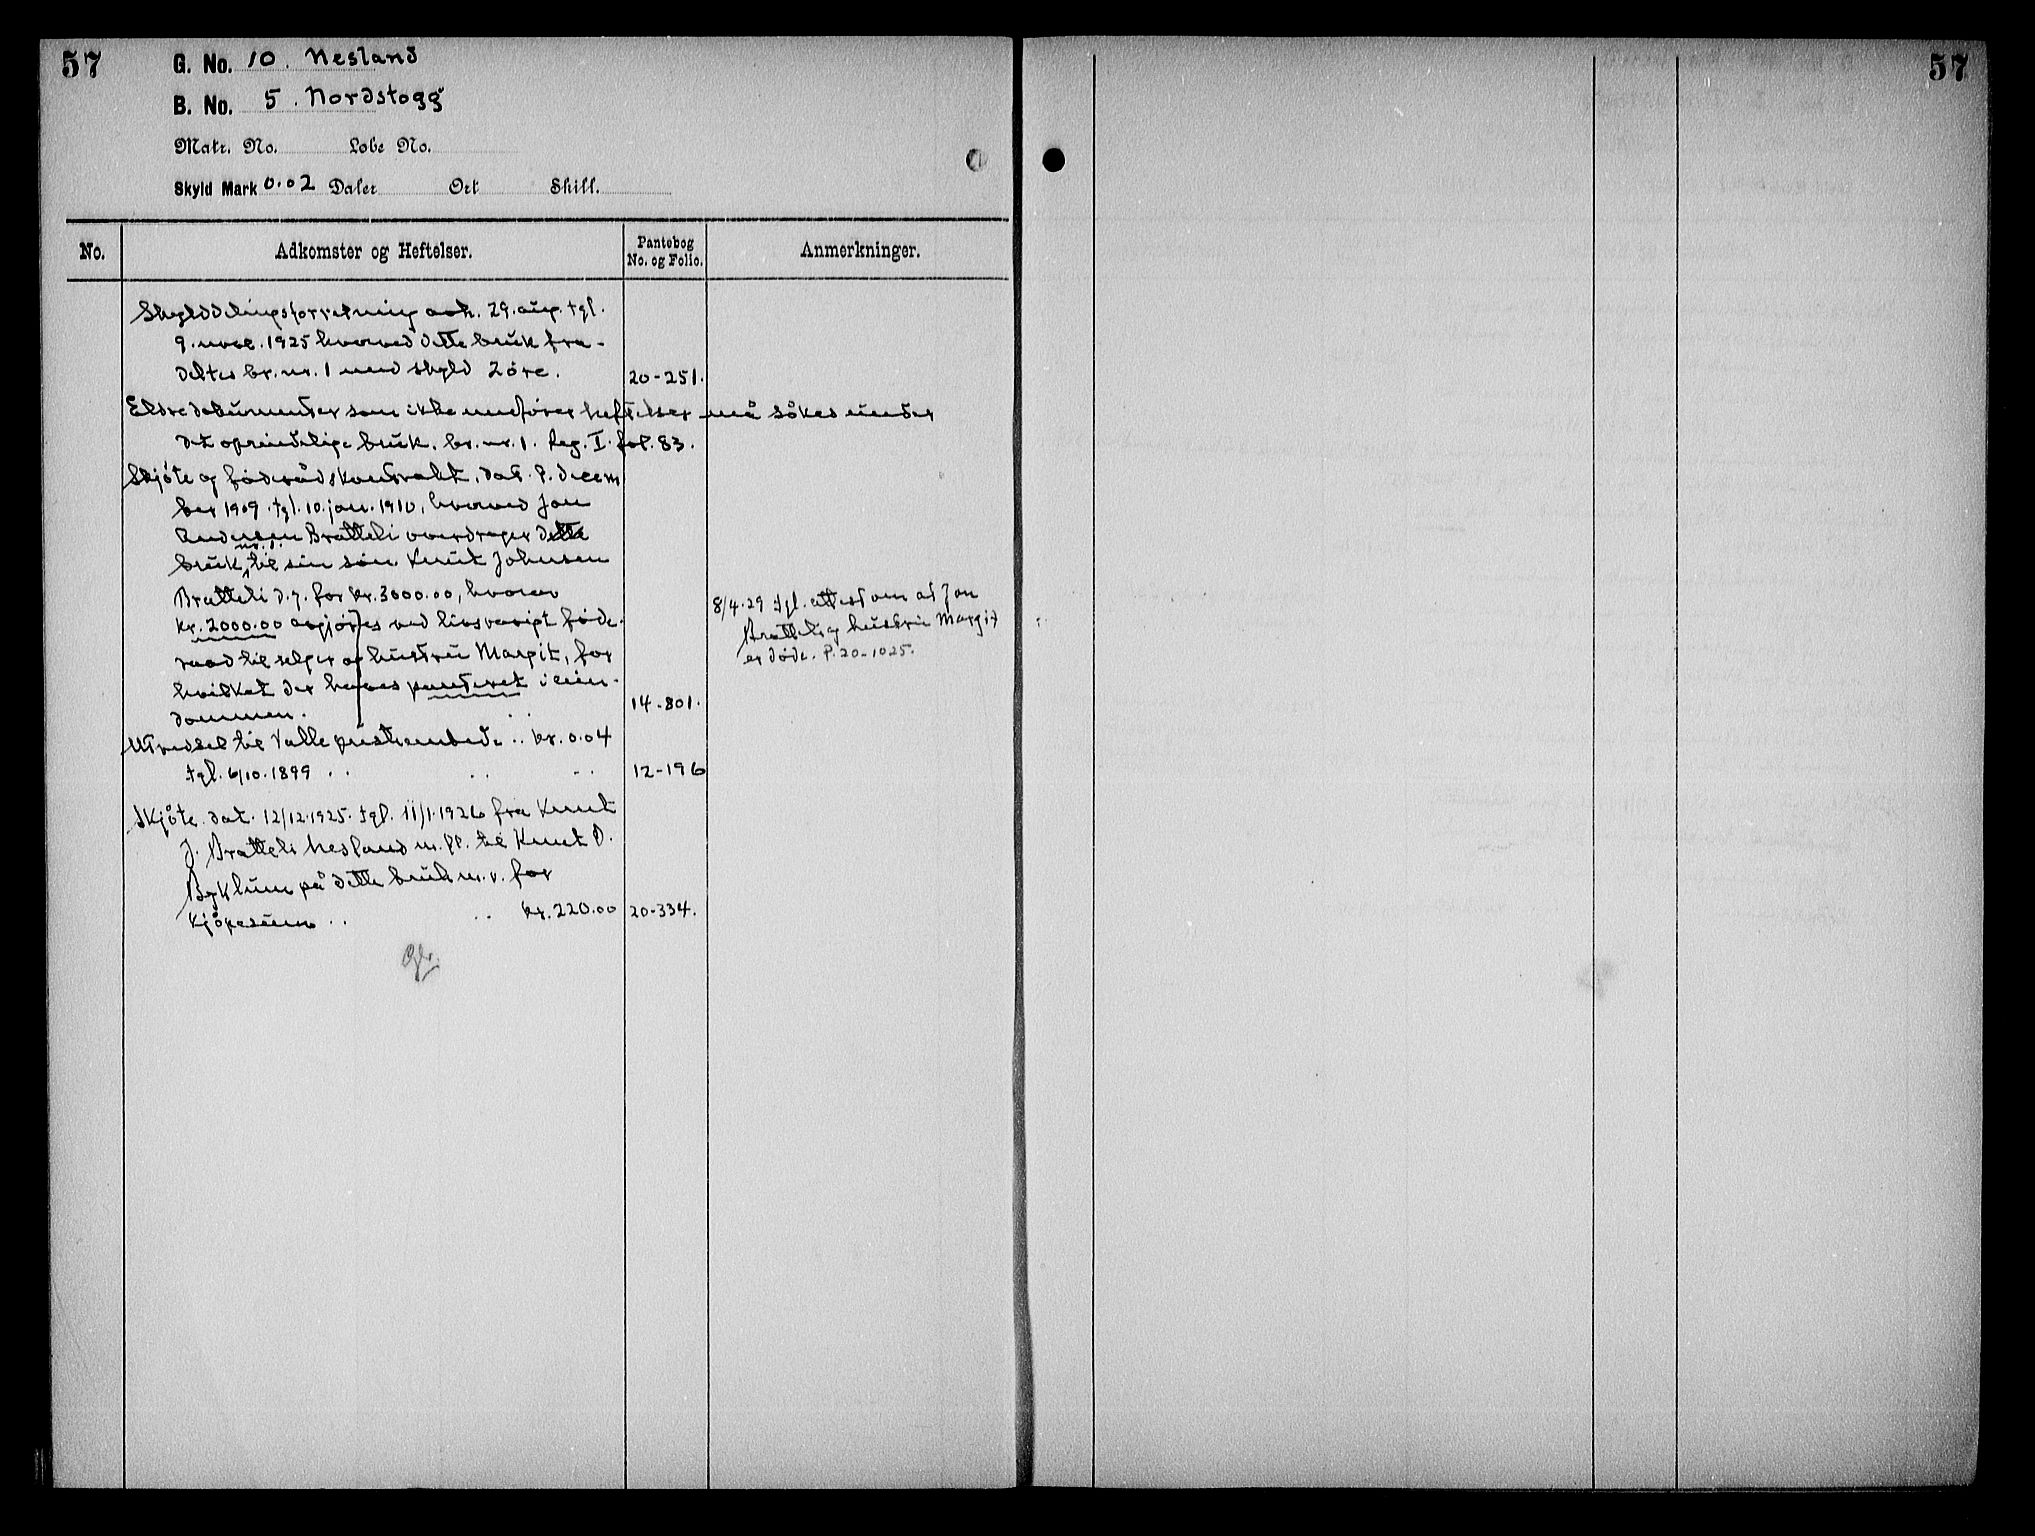 57
57
G. No. 10. Nesland
B. No. 5. Nordstogg
Matr. No. Løbe No.
Skyld Mark 0.02 Daler Ort Skill.
No.
Adkomster og Heftelser.
Pantebog
No. og Folio.
Anmerkninger.
Skylddelingsforretning avh. 29. aug. tgl.
9. nov. 1925 hvorved dette bruk fra-
deltes br. nr. 1 med skyld 2 øre. 20-251.
Eldre dokumenter som ikke medfører heftelser må søkes under
det oprindelige bruk, br. nr. 1. Reg. I. fol. 83.
Skjøte og føderådskontrakt, dat. 8. decem
ber 1909. tgl. 10. jan. 1910, hvorved Jon
Andersen Bratteli overdrager dette
bruk m.v. til sin søn Knut Johnsen
Bratteli d.y. for kr. 3000.00, hvorav
kr. 2000.00 avgjøres ved livsvarigt føde-
raad til selger og hustru Margit, for
hvilket der haves panteret i eien-
dommen. 14-801.
8/4.29 tgl. attest om at Jon
Bratteli og hustru Margit
er døde. P. 20-1025.
Utredsel til Valle prestembede .. kr. 0.04
tgl. 6/10.1899 .. .. .. 12-196
Skjøte dat. 12/12.1925. tgl. 11/1.1926 fra Knut
J. Bratteli Nesland m. fl. til Knut D.
Byklum på dette bruk m.v. for
kjøpesum .. .. kr. 220.00 20-334.